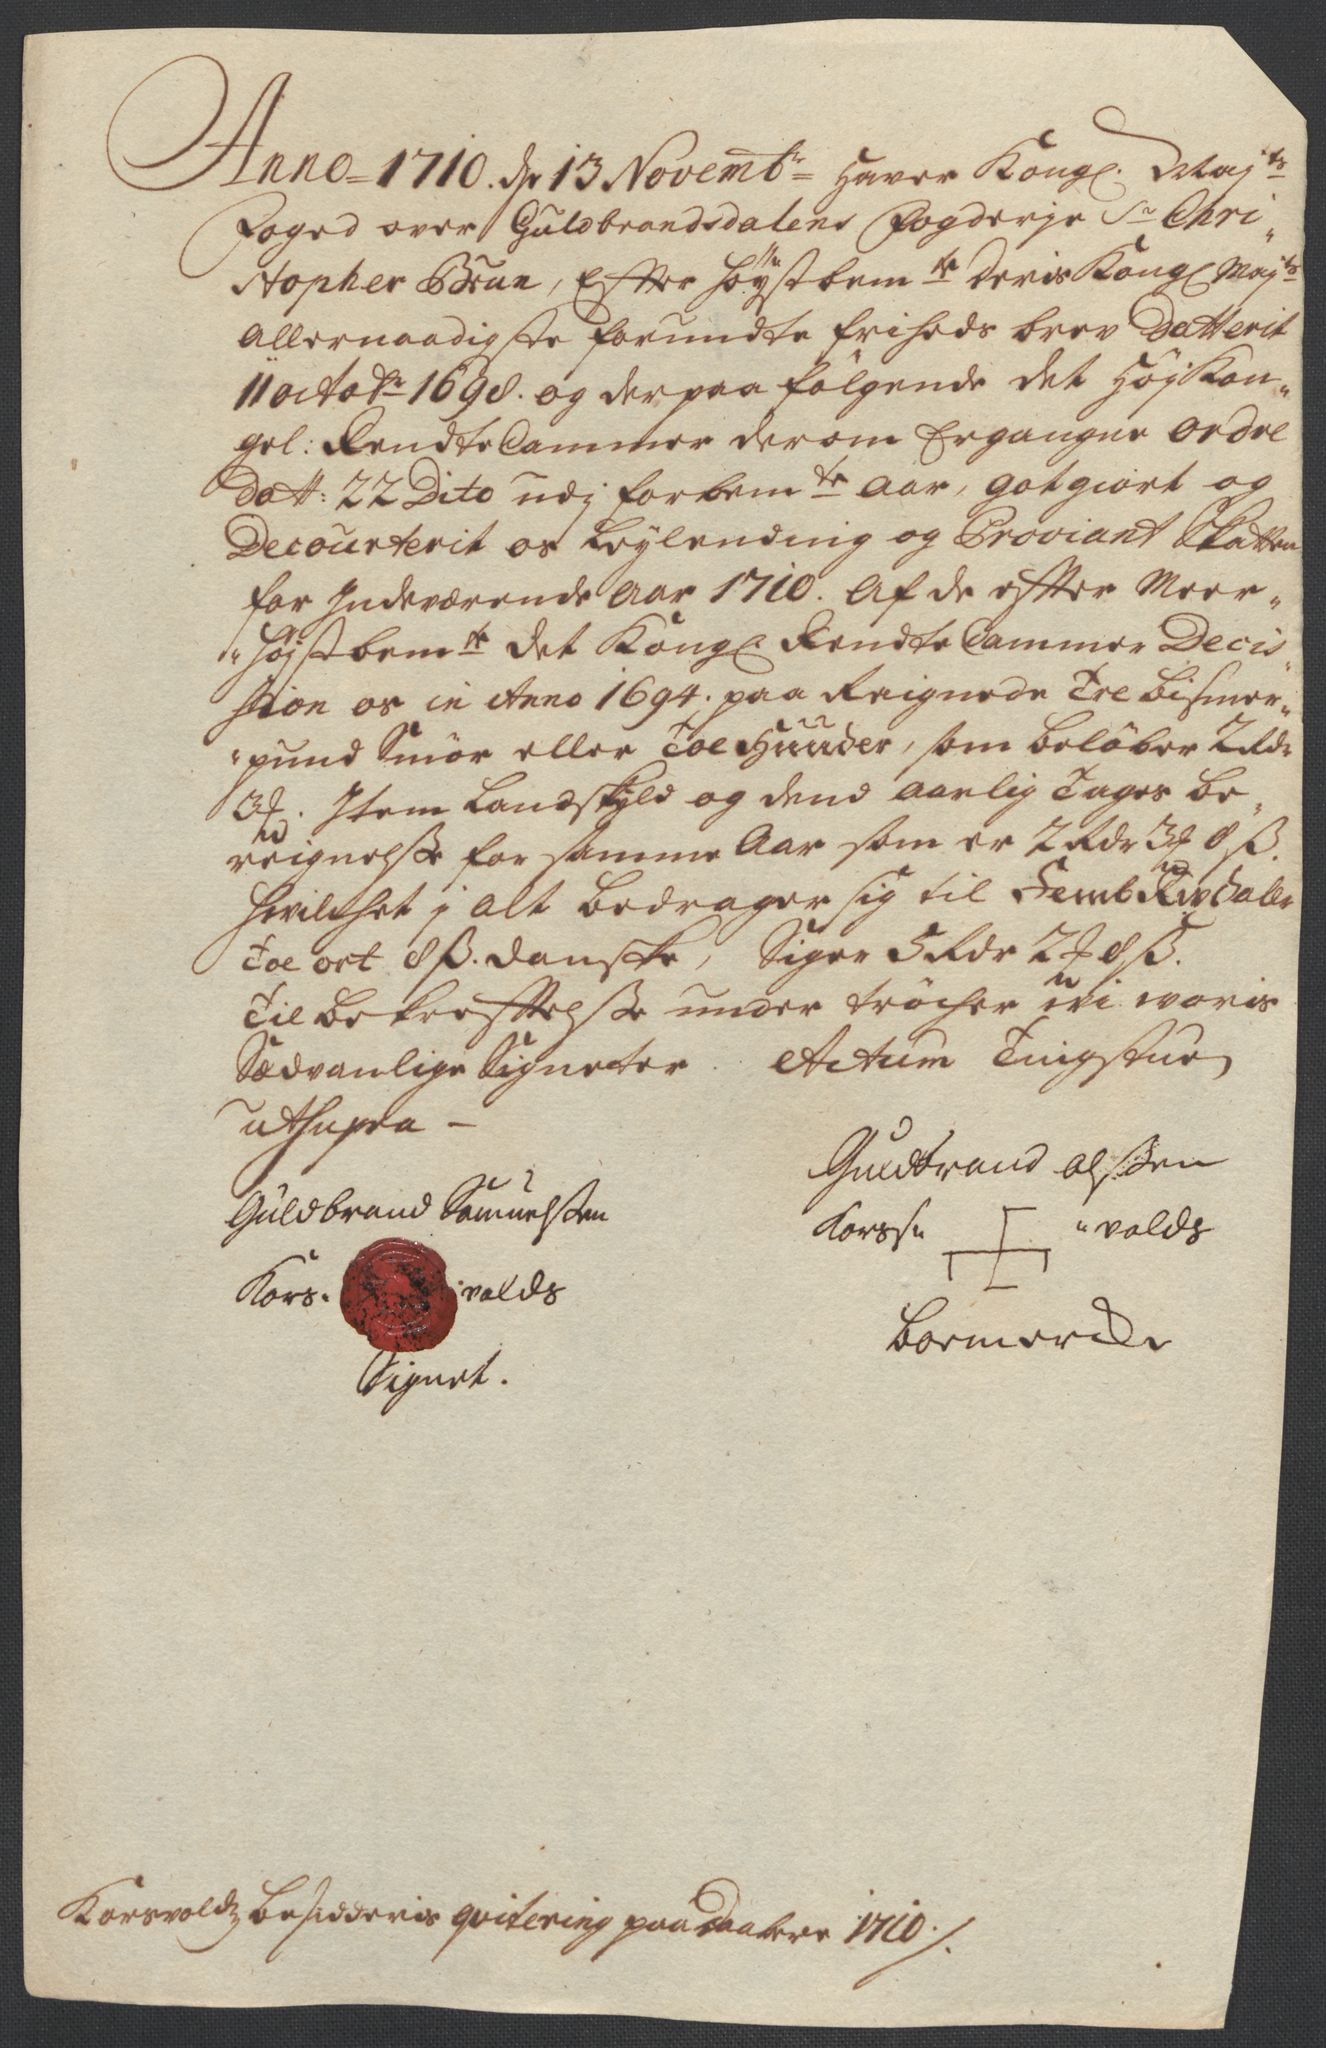 Anno 1710. d. 13 Novembr haver Kongl. Majts
Foged over Guldbrandsdalens Fogderje Sr Chri„
stopher Brun, Efter høystbemte Deris Kongl Majts
Allernaadigste forundte friheds brev Datterit
11 octobr 1698. og der paa følgende det HøjKon„
gel: RendteCammer derom Ergangne ordre
datt: 22 Dito udj forbemte Aar, gotgiort og
Decourterit os Leylending og Proviant Skatten
for Indeværende Aar 1710. Af de efter Meer„
„høystbemte det Kongl. RendteCammer Decis„
sion os in Anno 1694. paa Reignede Tre bismer„
„pund Smør eller Toe Huuder, som beløber 2 Rdr
3 ƒ. Item Landskyld og dend Aarlig Tages be„
reignelsse for samme Aar som er 2 Rdr 3 ƒ 8 ß.
hvilchet j alt bedrager sig til Femb Rixdaler
Toe ort 8 ß. danske, Siger 5 Rdr 2 ƒ 8 ß.
Til bekreftelsse under trøcher wi woris
Sædvanlige Signeter. Actum Tingstuen
ut supra –
Guldbrand Samuelssen
Kors„ „volds
Signet.
Guldbrand olssen
Korss„ „volds
boemercke
Korsvoldz besidderis qvitering paa Saatere 1710./.